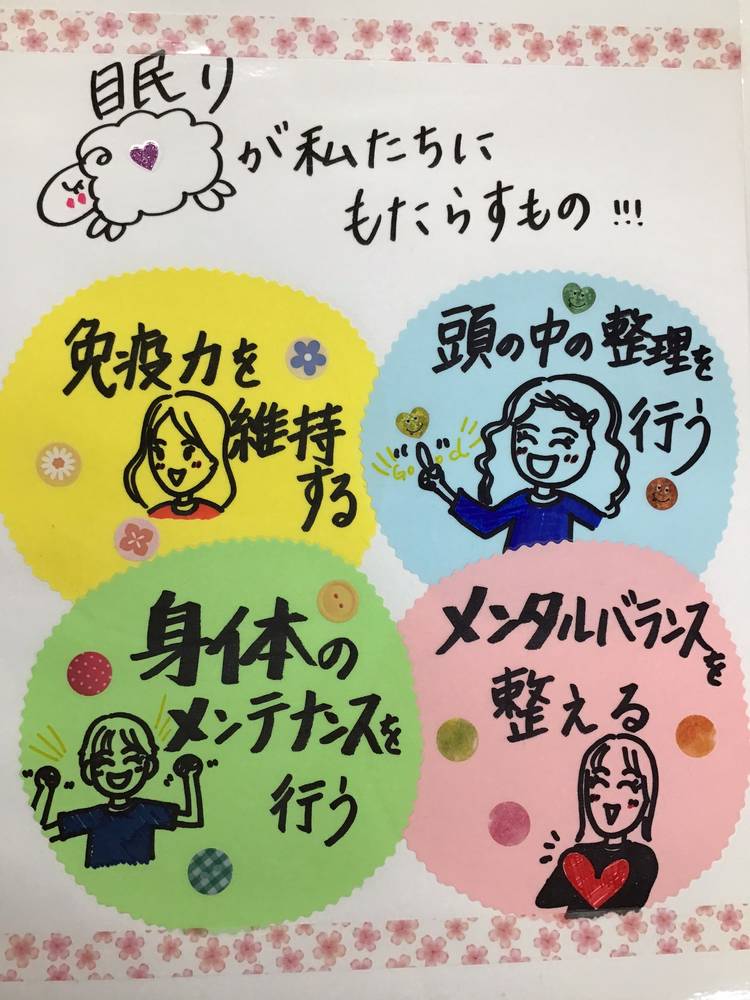 眠り
が私たちに
もたらすもの!!!
免疫力を
維持
する
頭の中の整理を
行う
Good
身体の
メンテナンスを
行う
メンタルバランスを
整える